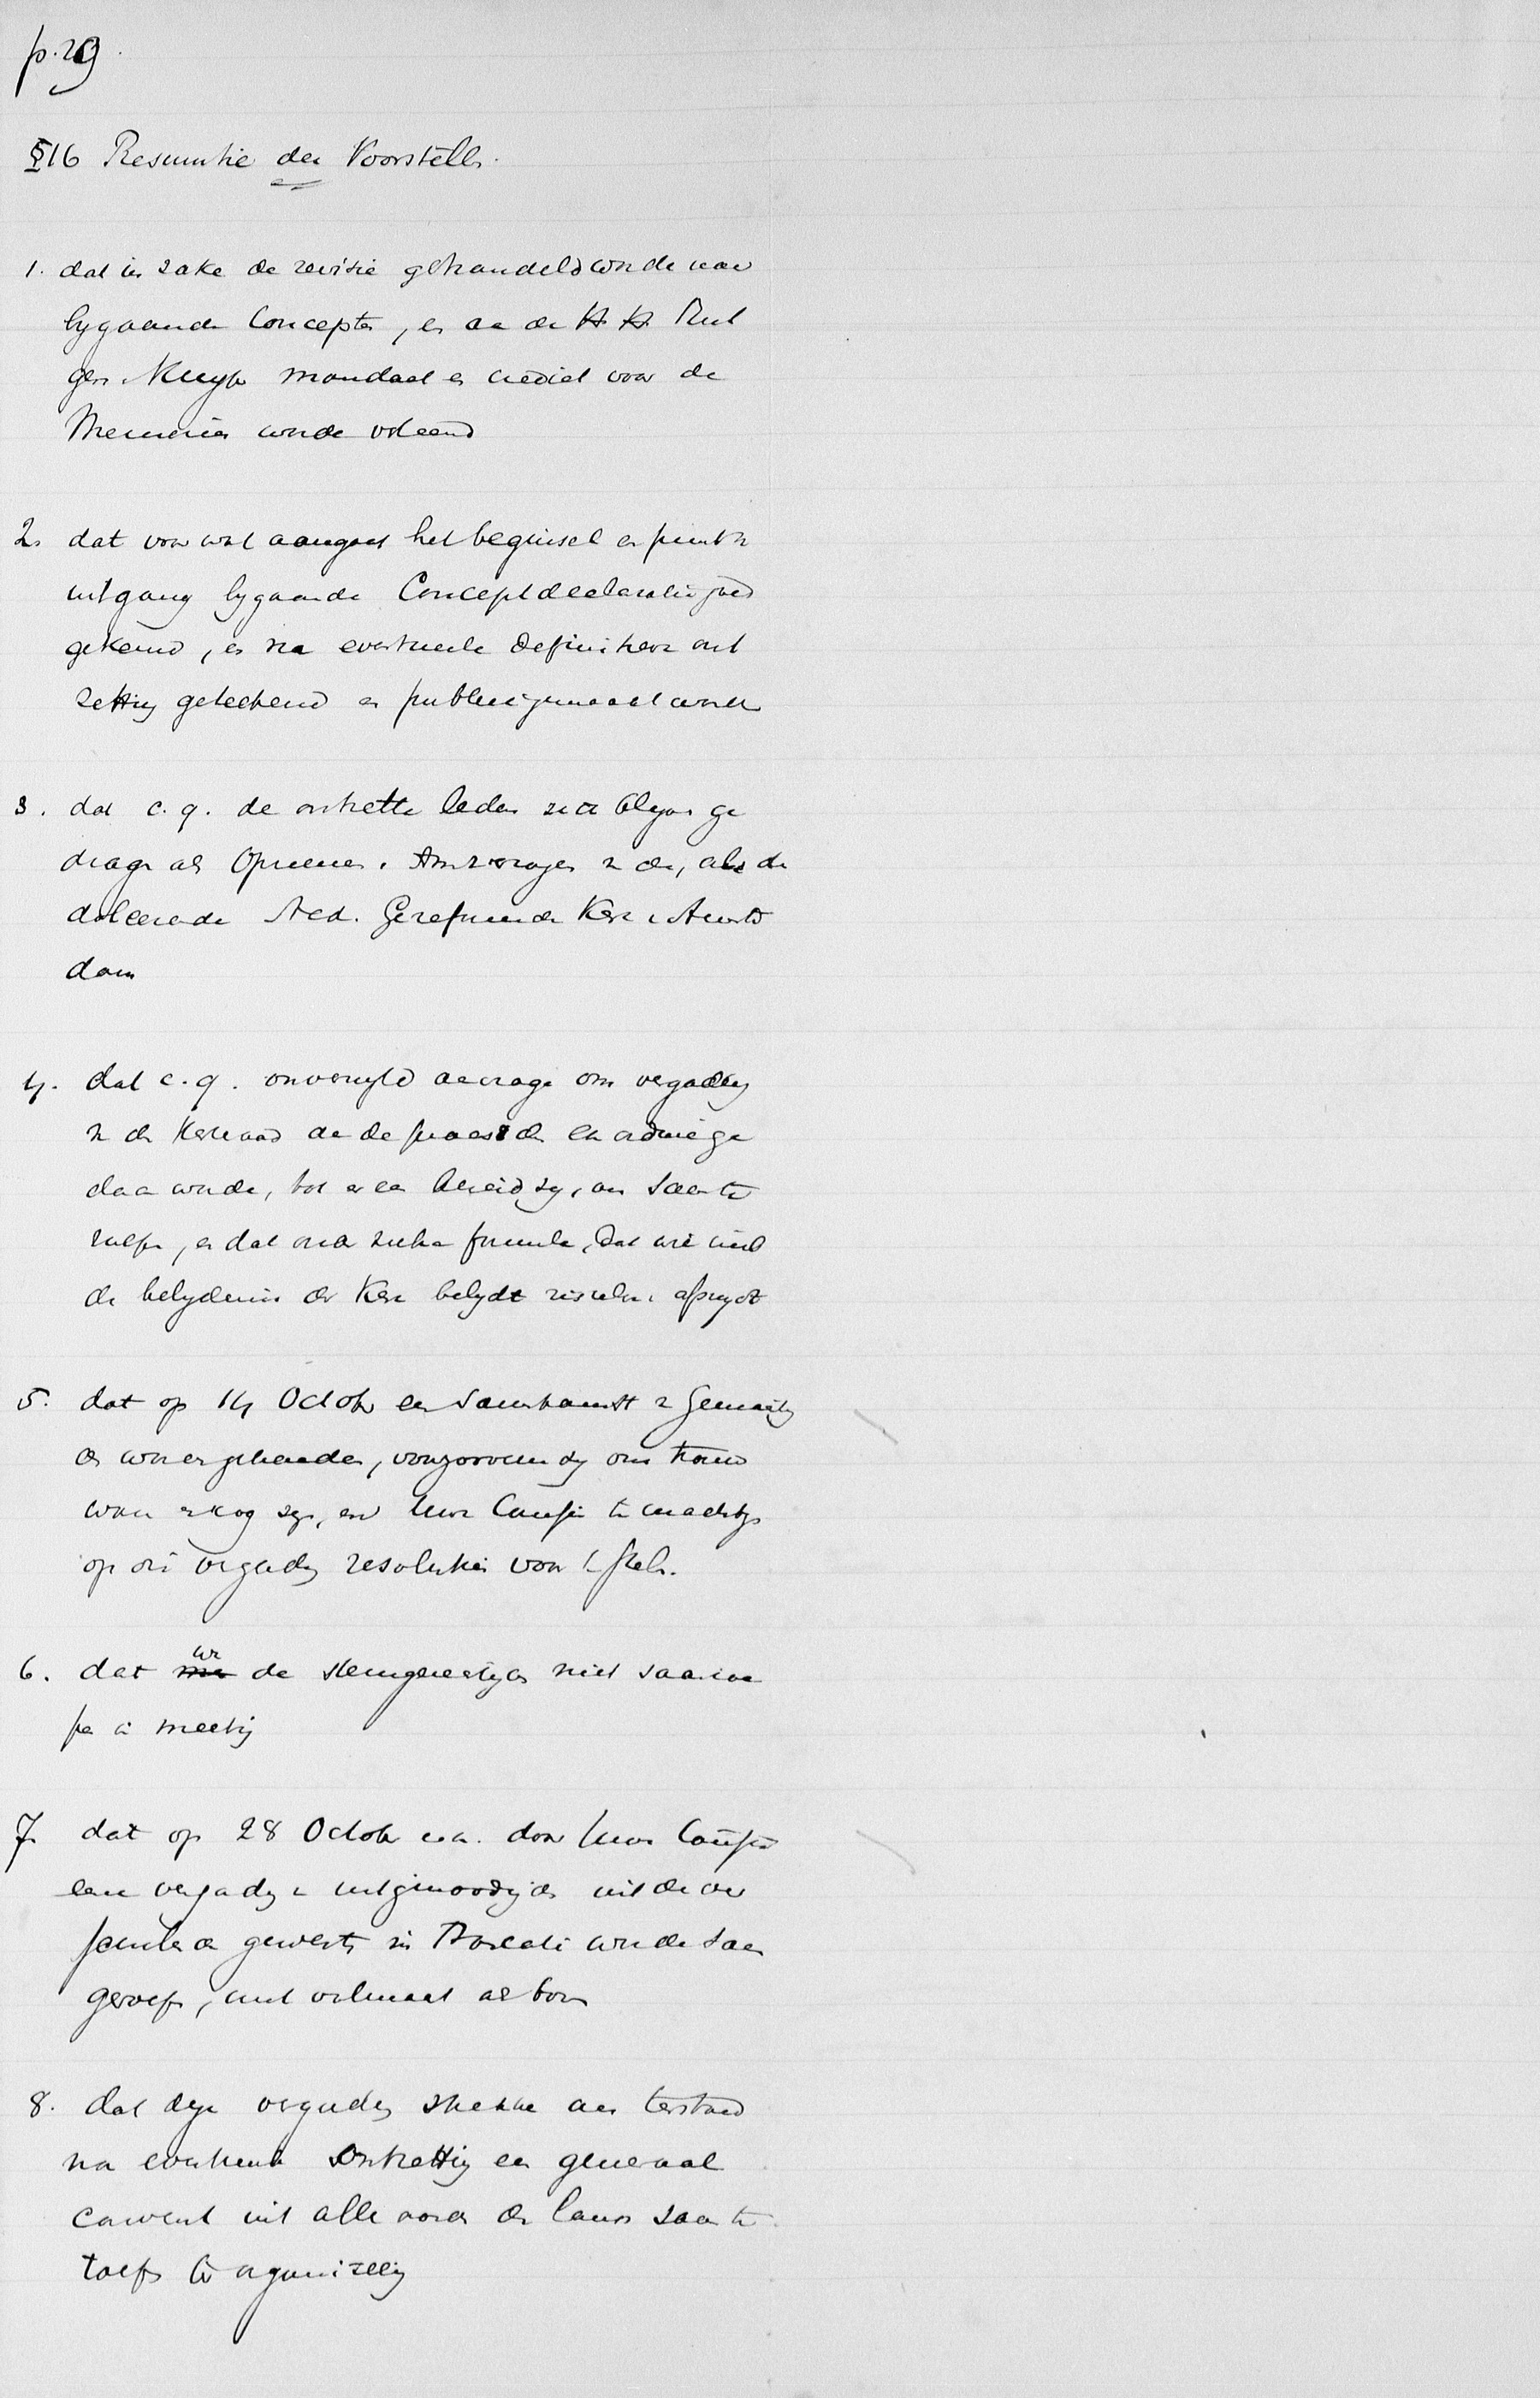 p. 29.
§16 Resumtie der Voorstelln.
1. dat in zake de revisie gehandeld worde naar
bygaande Concepten, en aan de H H Rut
gers. Kuyper mandaat en crediet voor de
Memories worde verleend
2. dat voor wat aangaat het beginsel en punt v
uitgang bygaande Conceptdeclaratie goed
gekeurd, en na eventueele definitieve ont
zetting geteekend en publiek gemaakt worde
3. dat c.q. de ontzette leden zich blyven ge
dragen als Opzieners. Armverzorgers v de, als de
doleerende Ned. Gereformeerde Kerk Amster
dam
4. dat c.q. onverwyld aanvrage om vergadering
v de Kerkeraad aan de praeses de ge
daan worde, tot er een bereid zy, om saam te
roepen, en dat onder zulke formule, dat wie niet
de belydenis der Kerk belydt afsnydt
5. dat op 14 Octob een samenkomst v Gemachtig
de worde gehouden, om trouw
en Uwe Comissie te machtigen
op die vergadering resolutien voor te stellen.
6. dat we de stemgerechtigden niet saamroe
pen in meeting
7. dat op 28 Octob door Uwe Comissie
eene vergadering v uitgenoodigden uit de ver
gewesten in Frascati worde saam
geroepen, met volmacht als boven
8. dat deze vergadering strekke om terstond
na eventueele Ontzetting een generaal
convent uit alle oorden des lands saam te
roepen te organiseeren